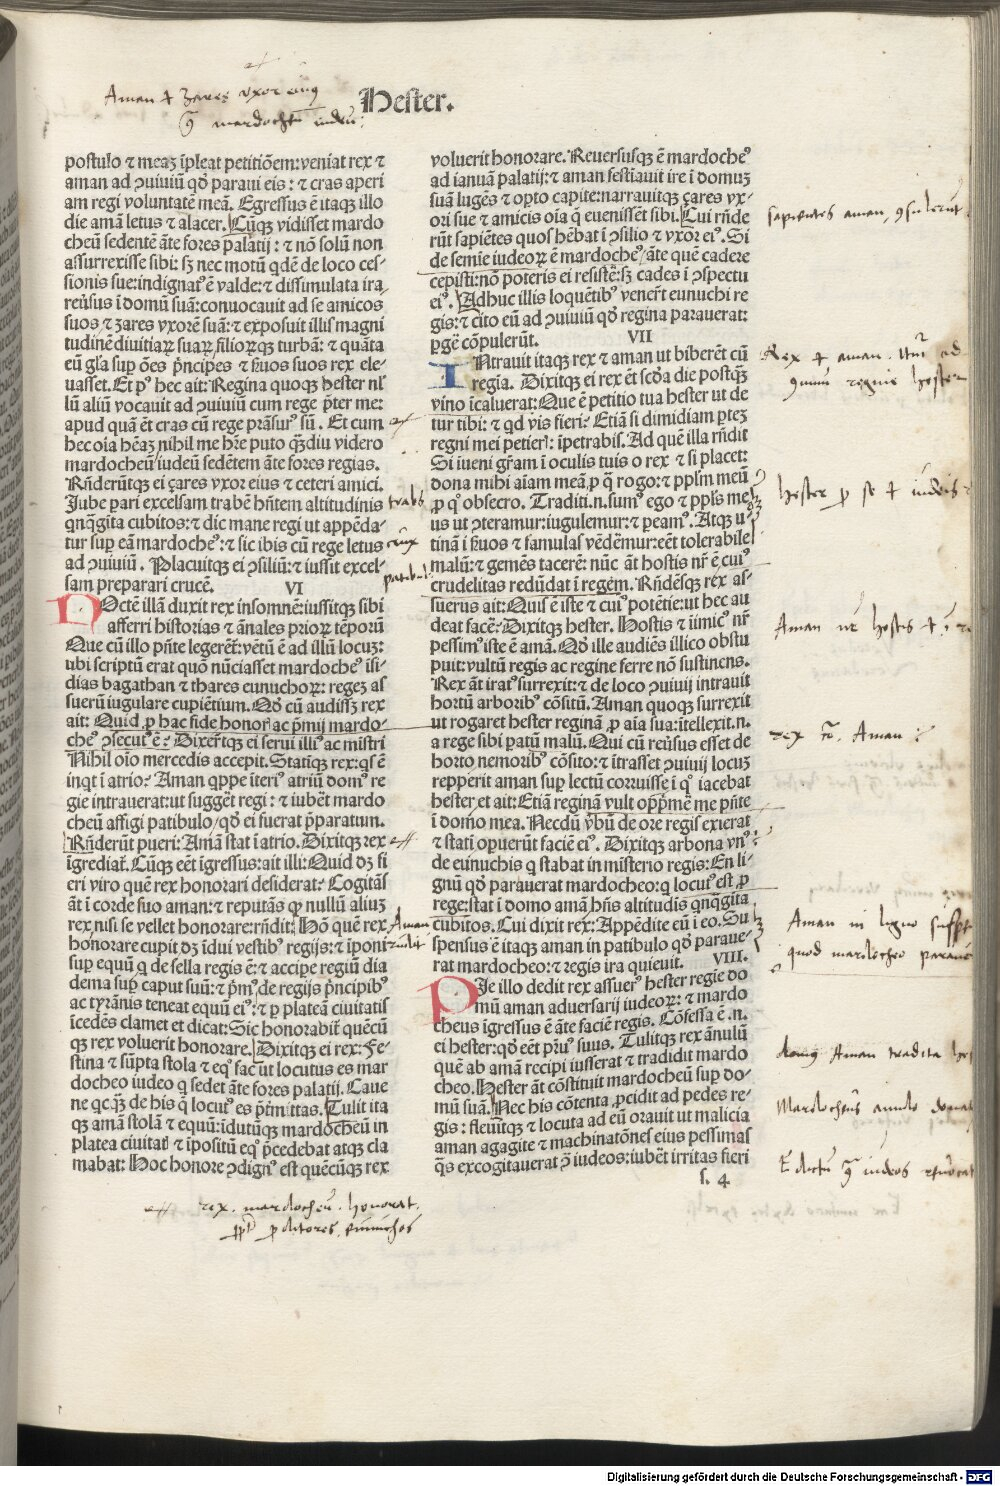 Aman & zares vxor eius
mardocheū iudeū:
Hester.
postulo ⁊ meaꝫ īpleat petitiōem: veniat rex ⁊
aman ad ꝯuiuiū qđ paraui eis: ⁊ cras aperi
am regi voluntatē meā. Egressus ē itaqꝫ illo
die amā letus ⁊ alacer. Cūqꝫ vidisset mardo
cheū sedentē āte fores palatij: ⁊ nō solū non
assurrexisse sibi: sꝫ nec motū qdē de loco ces-
sionis sue: indignatꝰ ē valde: ⁊ dissimulata ira
reūsus ī domū suā: convocauit ad se amicos
suos ⁊ zares vxorē suā: ⁊ exposuit illis magni
tudinē divitiaꝝ suaꝝ filioꝝqꝫ turbā: ⁊ quāta
eū gl̄a suꝑ ōes p̄ncipes ⁊ ẜuos suos rex ele-
uasset. Et pꝰ hec ait: Regina quoqꝫ hester nl̄
lū aliū vocauit ad ꝯuiuiū cum rege p̄ter me:
apud quā ēt cras cū rege prāsurꝰ sū. Et cum
hec oīa hēaꝫ nihil me hr̄e puto qꝫdiu videro
mardocheū iudeū sedētem āte fores regias.
Rn̄derūtqꝫ ei çares vxor eius ⁊ ceteri amici.
Jube pari excelsam trabē hn̄tem altitudinis
qnqgita cubitos: ⁊ dic mane regi ut appēda-
tur suꝑ eā mardocheꝰ: ⁊ sic ibis cū rege letus
ad ꝯuiuiū. Placuitqꝫ ei ꝯsiliū: ⁊ iussit excel-
sam preparari crucē. VI
NOctē illā duxit rex insomnē: iussitqꝫ sibi
afferri historias ⁊ ānales prioꝝ tēporū
Que cū illo pn̄te legerēt: vētū ē ad illū locuꝫ:
ubi scriptū erat quō nūciasset mardocheꝰ īsi-
dias bagathan ⁊ thares eunuchoꝝ: regeꝫ as
suerū iugulare cupiētium. Qđ cū audissꝫ rex
ait: Quid ꝓ hac fide honorꝭ ac p̄mij mardo-
cheꝰ ꝯsecutꝰ ē? Dixerūtqꝫ ei serui illiꝰ ac mīstri
Nihil oīo mercedis accepit. Statīqꝫ rex: qꝭ ē
inqt ī atrio? Aman qppe īteriꝰ atriū domꝰ re
gie intrauerat: ut suggēt regi: ⁊ iubēt mardo
cheū affigi patibulo/ qđ ei fuerat p̄paratum.
Rn̄derūt pueri: Amā stat ī atrio. Dixitqꝫ rex
īgrediaꝛ̄. Cūqꝫ eēt īgressus: ait illi: Quid dꝫ fi
eri viro quē rex honorari desiderat? Cogitās
āt ī corde suo aman: ⁊ reputās qꝫ nullū aliuꝫ
rex nisi se vellet honorare: rn̄dit: Hō quē rex
honorare cupit dꝫ īdui vestibꝰ regijs: ⁊ īponi
suꝑ equū q de sella regis ē: ⁊ accipe regiū dia
dema suꝑ caput suū: ⁊ p̄mꝰ de regijs p̄ncipibꝰ
ac tyrānis teneat equū eiꝰ: ⁊ ꝑ plateā ciuitatis
īcedēs clamet ⁊ dicat: Sic honorabit̄ quēcū
qꝫ rex voluerit honorare. Dixitqꝫ ei rex: Fe-
stina ⁊ sūpta stola ⁊ eqꝰ fac ut locutus es mar
docheo iudeo q sedet āte fores palatij. Caue
ne qcqꝫ de his q̄ locutꝰ es p̄tmittas. Tulit ita
qꝫ amā stolā ⁊ equū: īdutūqꝫ mardocheū in
platea ciuitatꝭ ⁊ īpositū eqꝰ p̄cedebat atqꝫ cla
mabat: Hoc honore ꝯdignꝰ est quēcūqꝫ rex
trabs
crux
patibulū
Aman
rex. mardocheū. honorat.
ꝓditores. eunuchos
voluerit honorare. Reuersusqꝫ ē mardocheꝰ
ad ianuā palatij: ⁊ aman festiauit ire ī domuꝫ
suā lugēs ⁊ opto capite: narrauitqꝫ çares vx-
ori sue ⁊ amicis oīa q̄ euenissēt sibi. Cui rn̄de
rūt sapiētes quos hēbat ī ꝯsilio ⁊ vxor eiꝰ. Si
de semīe iudeoꝝ ē mardocheꝰ/ āte quē cadere
cepisti: nō poteris ei resistē: sꝫ cades ī ꝯspectu
eiꝰ. Adhuc illis loquētibꝰ venerūt eunuchi re
gis: ⁊ cito eū ad ꝯuiuiū qđ regina parauerat:
pgē cōpulerūt. VII
INtrauit itaqꝫ rex ⁊ aman ut biberēt cū
regia. Dixitqꝫ ei rex ēt scđa die postqꝫ
vino īcaluerat: Que ē petitio tua hester ut de
tur tibi: ⁊ qd vis fieri? Etiā si dimidiam ꝑteꝫ
regni mei petierꝭ: īpetrabis. Ad quē illa rn̄dit
Si iueni gr̄am ī oculis tuis o rex ⁊ si placet:
dona mihi aīam meā ꝓ q̄ rogo: ⁊ pplm meū
ꝓ qꝰ obsecro. Traditi.n.sumꝰ ego ⁊ ppls me
us ut ꝯteramur: iugulemur: ⁊ ꝑeamꝰ. Atqꝫ u-
tinā ī ẜuos ⁊ famulas vēdēmur: eēt tolerabile
malū: ⁊ gemēs tacerē: nūc āt hostis nr̄ ē cuiꝰ
crudelitas redūdat ī regem. Rn̄dēsqꝫ rex as-
suerus ait: Quis ē iste ⁊ cuiꝰ potētie: ut hec au
deat facē? Dixitqꝫ hester. Hostis ⁊ īimicꝰ nr̄
pessimꝰ iste ē amā. Qđ ille audiēs illico obstu
puit: vultū regis ac regine ferre nō sustinens.
Rex āt iratꝰ surrexit: ⁊ de loco ꝯuiuij intrauit
hortū arboribꝰ cōsitū. Aman quoqꝫ surrexit
ut rogaret hester reginā ꝓ aīa sua: ītellexit.n.
a rege sibi patū malū. Qui cū reūsus esset de
horto nemoribꝰ cōsito: ⁊ ītrasset ꝯuiuij locuꝫ
repperit aman suꝑ lectū corruisse ī qꝰ iacebat
hester et ait: Etiā reginā vult opp̄mē me pn̄te
ī domo mea. Necdū v̄bū de ore regis exierat
⁊ statī oꝑuerūt faciē eiꝰ. Dixitqꝫ arbona vnꝰ
de eunuchis q stabat in mīsterio regis: En li-
gnū qđ parauerat mardocheo: q locutꝰ est ꝓ
rege: stat ī domo amā hn̄s altitudīs qnqgita
cubitos. Cui dixit rex: Appēdite eū ī eo. Su
spensus ē itaqꝫ aman in patibulo qđ paraue-
rat mardocheo: ⁊ regis ira quieuit. VIII.
DJe illo dedit rex assuerꝰ hester regie do
mū aman aduersarij iudeoꝝ: ⁊ mardo
cheus īgressus ē āte faciē regis. Cōfessa ē .n.
ei hester: qđ eēt pr̄uꝰ suus. Tulitqꝫ rex ānulū
quē ab amā recipi iusserat ⁊ tradidit mardo
cheo. Hester āt cōstituit mardocheū suꝑ do-
mū suā. Nec his cōtenta ꝓcidit ad pedes re-
gis: fleuitqꝫ ⁊ locuta ad eū orauit ut malicia
aman agagite ⁊ machinatōnes eius pessimas
q̄s excogitauerat ꝯ̄ iudeos: iubēt irritas fieri
f. 4
sapientes aman, ꝯsulerūt
Rex & aman. ad
regine hester
hester ꝓ se & iudeis
Aman hostis &
rex Aman
Aman in ligno
quod mardocheo
domus Aman tradita
Mardocheus anulo
Edictū iudeos
Digitalisierung gefördert durch die Deutsche Forschungsgemeinschaft - DFG